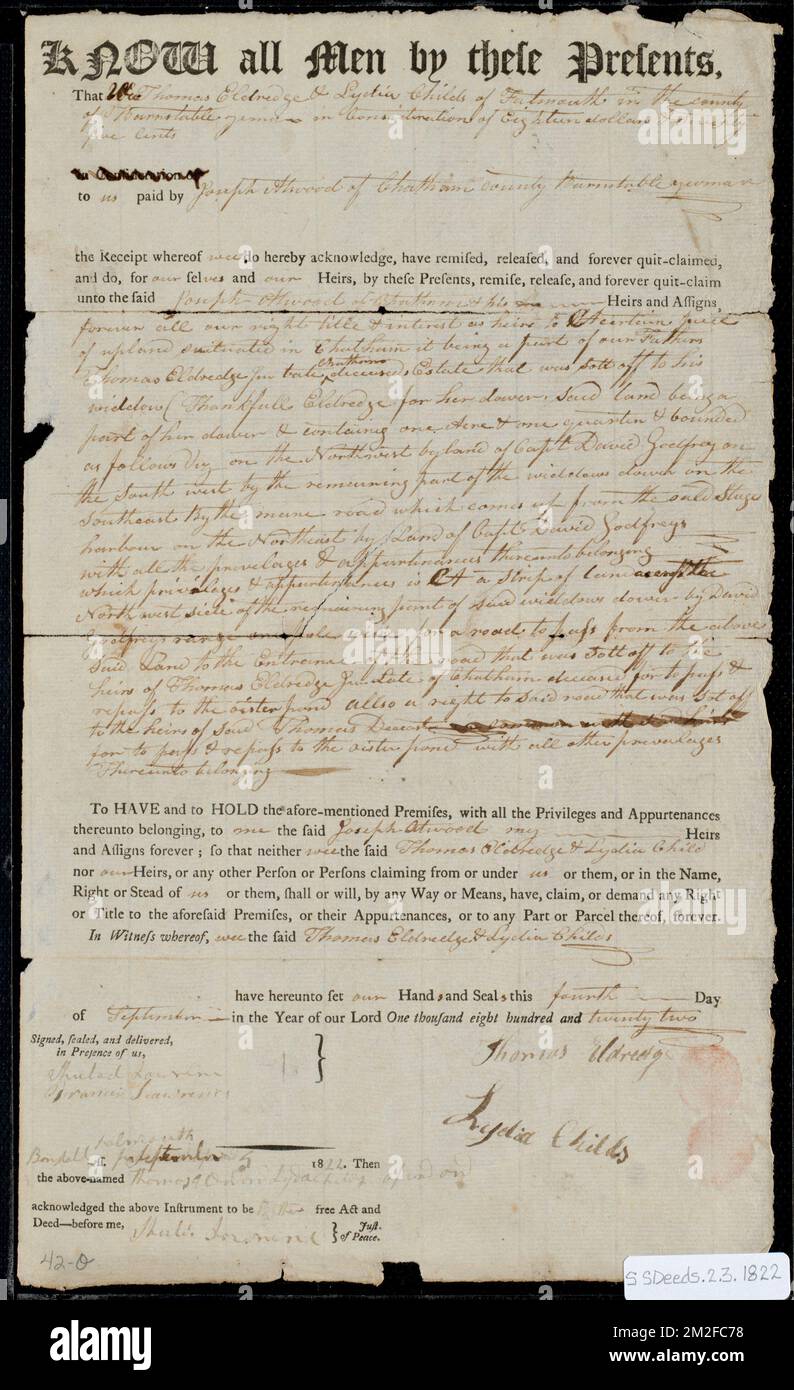 KNOW all Men by theſe Preſents,
That We Thomas Eldredge & Lydia Childs of Falmouth in the county
of Barnstable yeman in Consideration of Eighteen dollars & seventy
five Cents
to us paid by Joseph Atwood of Chatham County Barnstable yeoman
the Receipt whereof wee do hereby acknowledge, have remised, released, and forever quit-claimed,
and do, for our selves and our Heirs, by these Presents, remise, release, and forever quit-claim
unto the said Joseph Attwood of Chatham & his Heirs and Aſſigns
forever all our right title & interest as heirs to A certain peice
of upland situated in Chatham it being a part of our Fathers
Thomas Eldredge Jur late Chatham deceased Estate that was sott off to his
widdow (Thankfull Eldredge for her dower, said land being a
part of her dower & containg one Acre & one quarter & bounded
as follows Viz on the Northwest by land of Capt David Godfrey on
the South west by the remening part of the widdows dower on the
Southeast By the mane road which comes up from the oald Stage
harbour on the Northeast by Land of Capt David Godfreys
with all the privelages & appurtinances thereunto belonging
which privelages & appurtinances is A a Strip of land
Northwest side of the remaining part of said widdows dower by David
Godfreys range for a road to paſs from the above
Said Land to the Entrance of the road that was sott off to the
heirs of Thomas Eldredge Jur Late of Chatham deceased for to paſs &
repaſs to the oister pond allso a right to said road that was sot off
to the heirs of said Thomas Deceast
for to paſs & repaſs to the oister pond with all other prevelages
Thereunto belonging
To HAVE and to HOLD the afore-mentioned Premiſes, with all the Privileges and Appurtenances
thereunto belonging, to me the said Joseph Atwood my Heirs
and Aſſigns forever; ſo that neither wee the said Thomas Eldredge & Lydia Child
nor our Heirs, or any other Perſon or Perſons claiming from or under us or them, or in the Name,
Right or Stead of us or them, ſhall or will, by any Way or Means, have, claim, or demand any Right
or Title to the aforeſaid Premiſes, or their Appurtenances, or to any Part or Parcel thereof, forever.
In Witneſs whereof, wee the said Thomas Eldredge & Lydia Childs
have hereunto set our Hands and Seals this fourth Day
of September in the Year of our Lord One thouſand eight hundred and twenty two
Signed, ſealed, and delivered,
in Preſence of us,
Thomas Eldredge
Lydia Childs
Falmouth
ſſ. September 5 1822. Then
the above-named Thomas
acknowledged the above Inſtrument to be free Act and
Deed—before me, Juſt.
of Peace.
42-O
SSDeeds.23.1822
alamy
Image ID: 2M2FC78
www.alamy.com